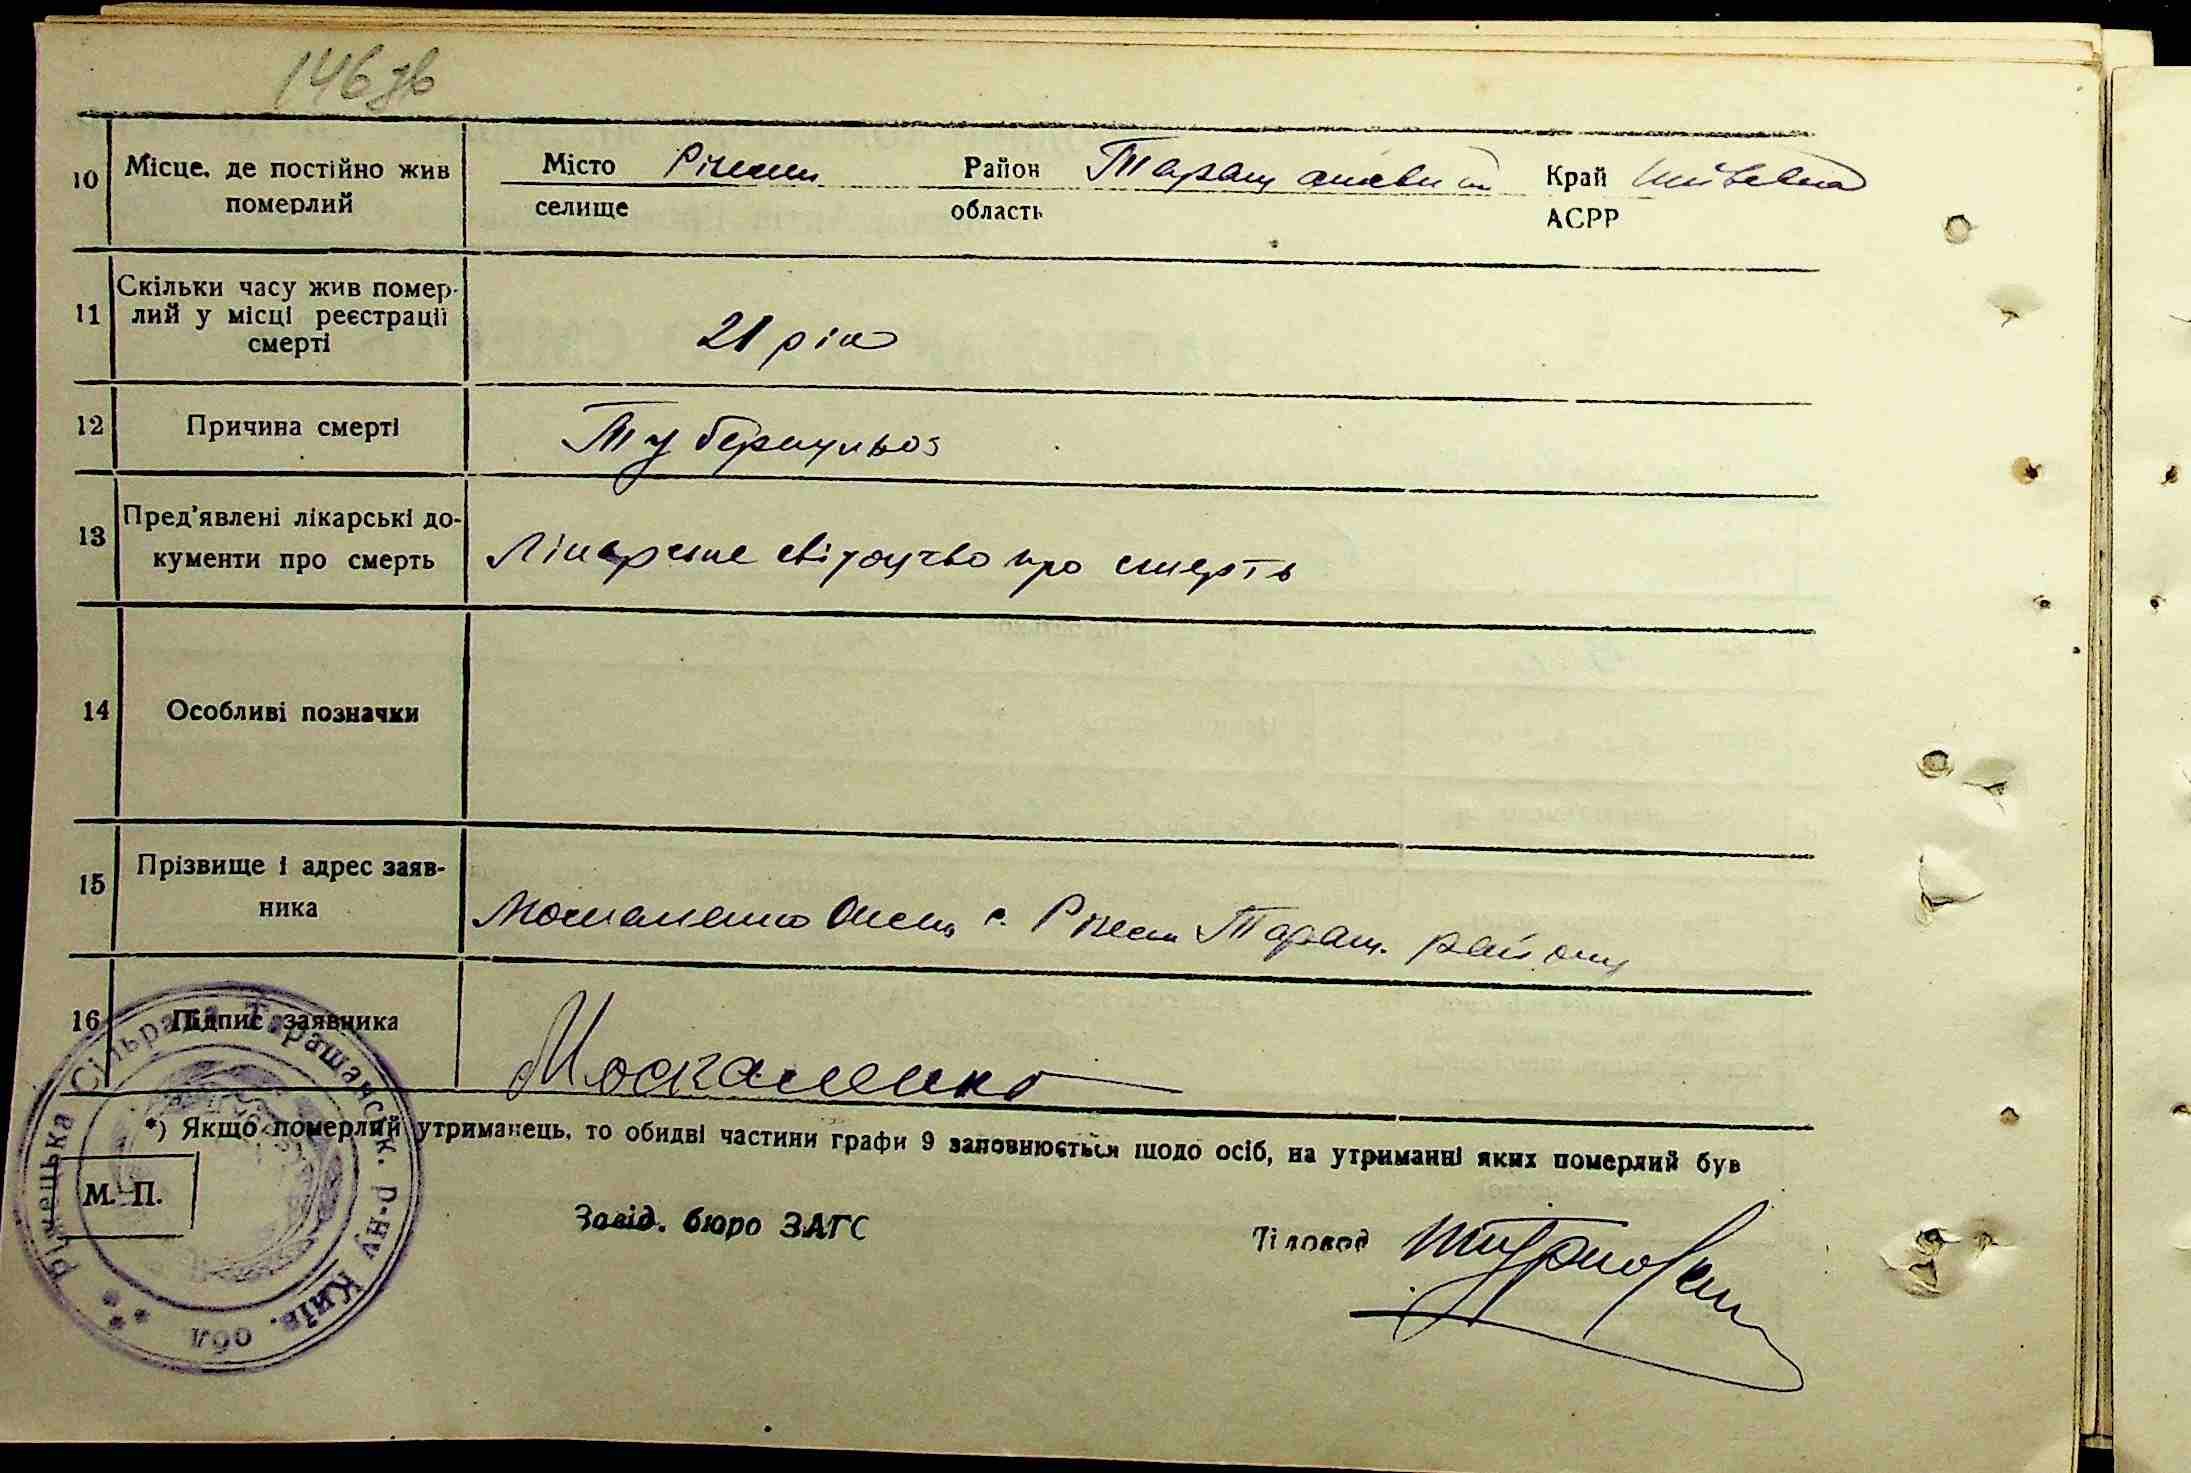 146 зв
10 Місце, де постійно жив померлий
Місто Ріжки Район Таращанський Край Київська
селище область АСРР
11 Скільки часу жив помер-
лий у місці реєстрації
смерті
21 рік
12 Причина смерті
Туберкульоз
13 Пред'явлені лікарські до-
кументи про смерть
Лікарське свідоцтво про смерть
14 Особливі позначки
15 Прізвище і адрес заяв-
ника
Москаленко с. Ріжки Таращ. району
16 Підпис заявника
Москаленко
*) Якщо померлий утриманець, то обидві частини графи 9 заповнюється щодо осіб, на утриманні яких померлий був
М. П.
Завід. бюро ЗАГС
Діловод
Сільрада Таращанськ. р-ну Київ. обл